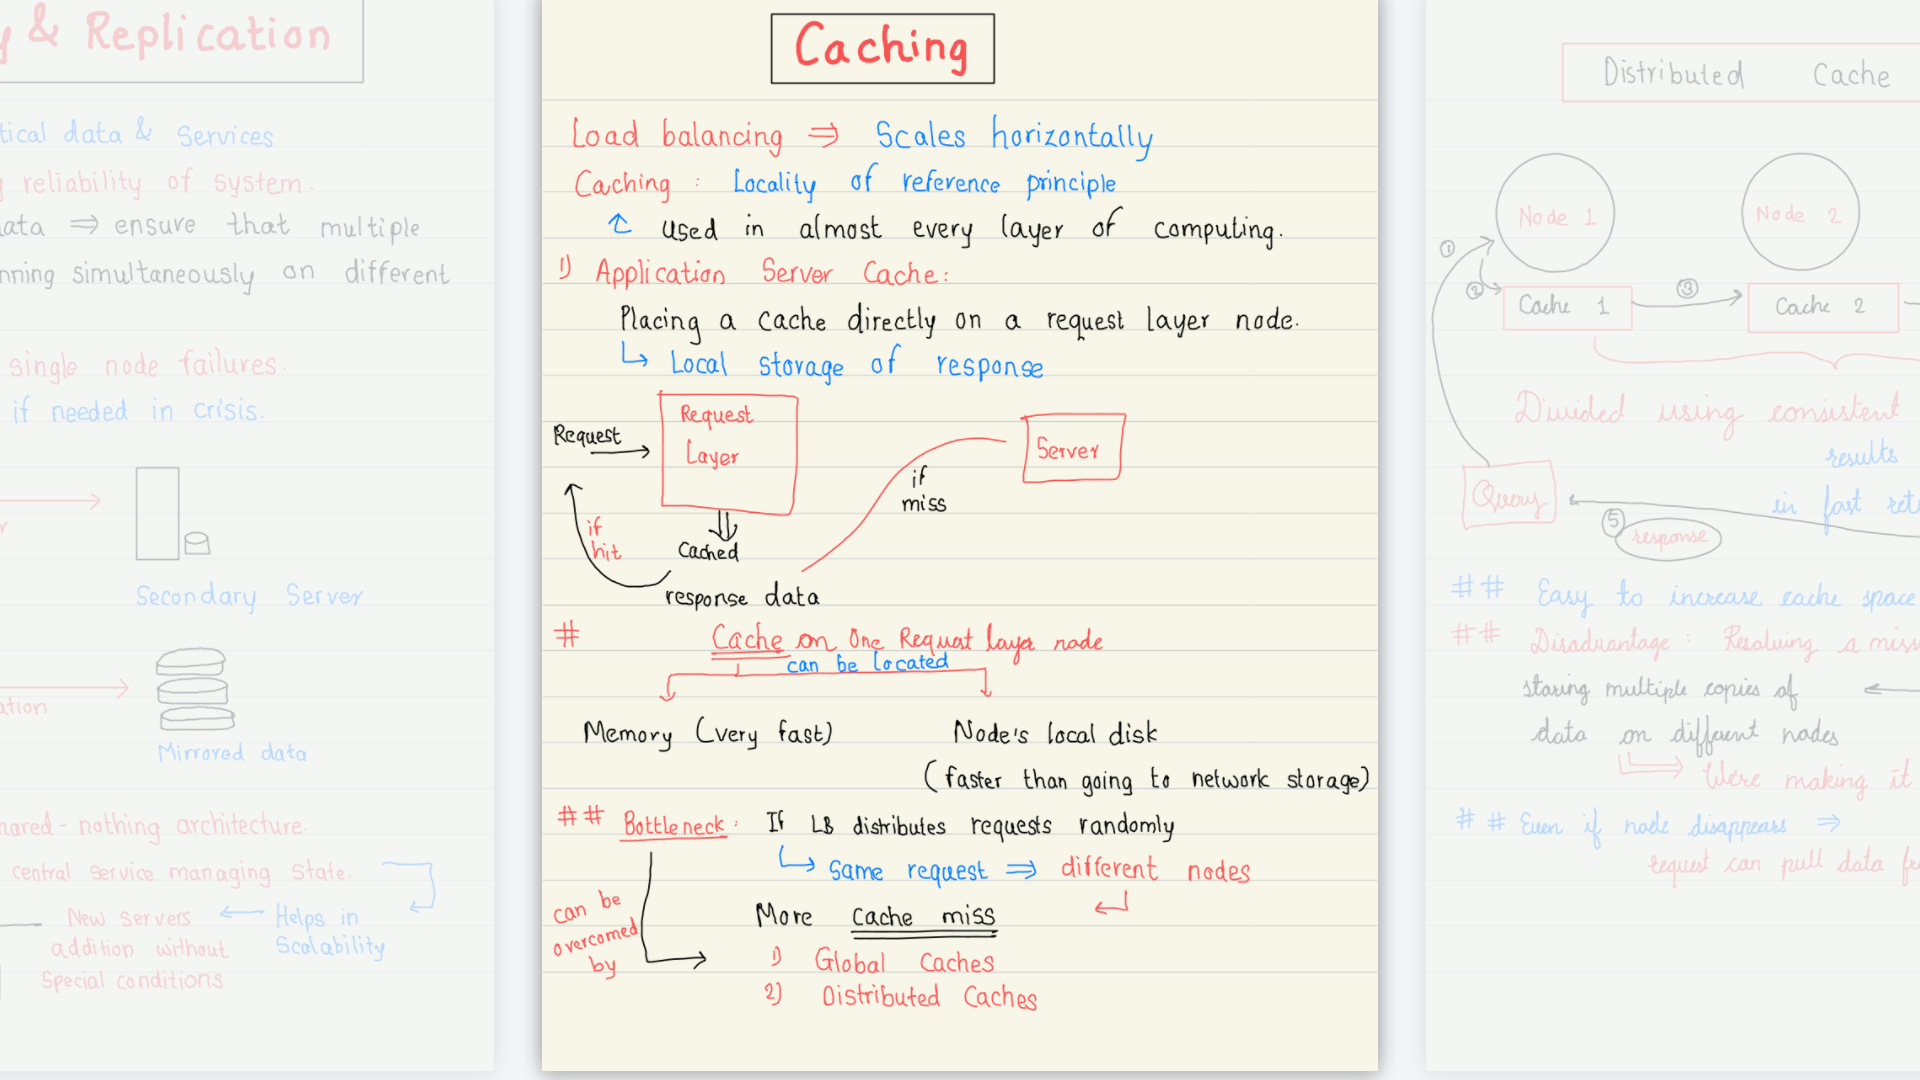 & Replication
tical data & Services
reliability of system.
ata ⇒ ensure that multiple
nning simultaneously on different
single node failures.
if needed in crisis.
Secondary Server
ation
Mirrored data
hared - nothing architecture.
central service managing state.
New servers ← Helps in
addition without Scalability
Special conditions
Caching
Load balancing ⇒ Scales horizontally
Caching : Locality of reference principle
used in almost every layer of computing.
1) Application Server Cache:
Placing a cache directly on a request layer node.
↳ Local storage of response
Request
Request
Layer
Server
if
miss
if
hit
Cached
response data
# Cache on One Request layer node
can be located
Memory (very fast)
Node's local disk
(faster than going to network storage)
## Bottleneck: If LB distributes requests randomly
↳ Same request ⇒ different nodes
More Cache miss
can be
overcomed
by
1) Global Caches
2) Distributed Caches
Distributed Cache
Node 1
Node 2
①
②
③
Cache 1
Cache 2
Divided using consistent
results
Query
in fast ret
⑤
response
## Easy to increase cache space
## Disadvantage : Resolving a miss
storing multiple copies of
data on different nodes
We're making it
## Even if node disappears ⇒
request can pull data f